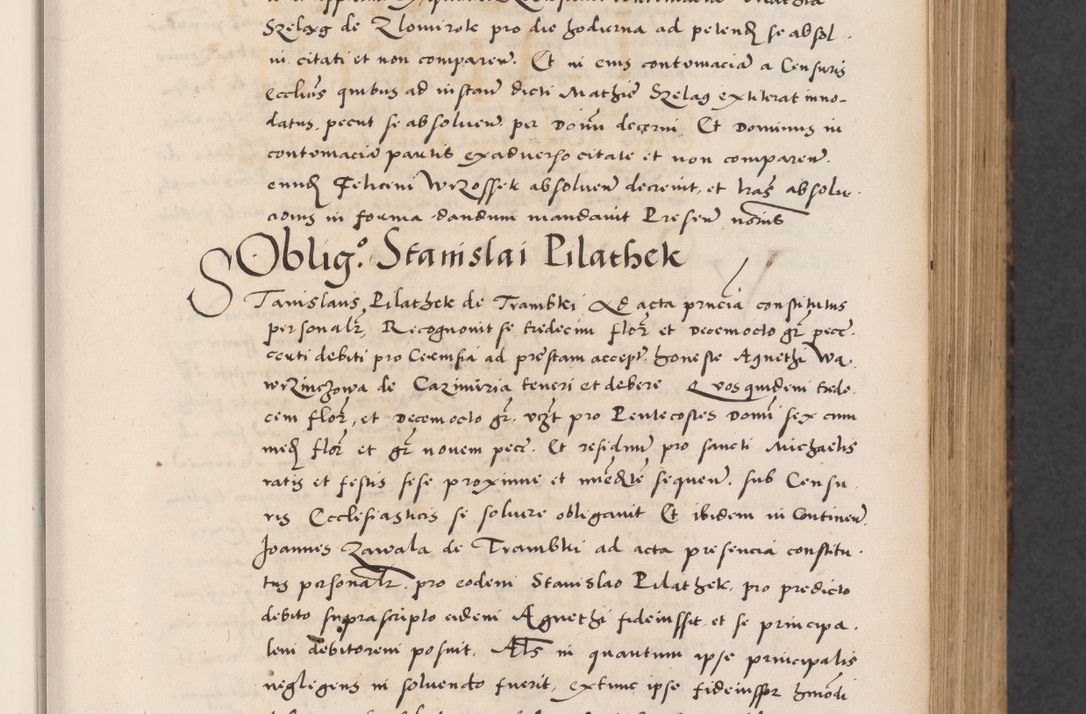 Szelag de Zlomirote pro die hodierna ad petend se absol
ui citati et non comparen. Et in eius contumacia a Censuris
eccliis quibus ad instan dicti Mathie Szelag extiterat inno-
datus, petiit se absoluen per Domin decerni. Et Dominus in
contumacia partis exaduerso citate et non comparen.
eund Felicem Wrzossek absoluen decreuit, et lras absolu-
cionis in forma dandum mandauit Presen
Obligo. Stanislai Pilathek
Stanislaus Pilathek de Trambki Ad acta pñcia constitutus
personalr, Recognouit se tredecim flor et decemocto gr pecc.
centi debiti pro Ceruisia ad prestam accept. honeste Agnethi Wa.
wrzinczowa de Cazimiria teneri et debere Quos quidem trede
cem flor, et decemocto gr. pro Pentecostes Domi sex cum
med flor et gr nouem pecc. Et residuu pro sancti Michaelis
ratis et festis sese proxime et sequen. sub Censu
ris Ecclesiasticis se soluere obligauit Et ibidem in Continen.
Joannes Zawala de Trambki ad acta presencia constitu.
tus personalr. pro eodem Stanislao Pilathek, pro predicto
debito suprascripto eidem Agnethi fideiussit, et se principa.
lem debitorem posuit. Als in quantum ipse principalis
neglegens in soluendo fuerit, extunc ipse fideiussor hmodi